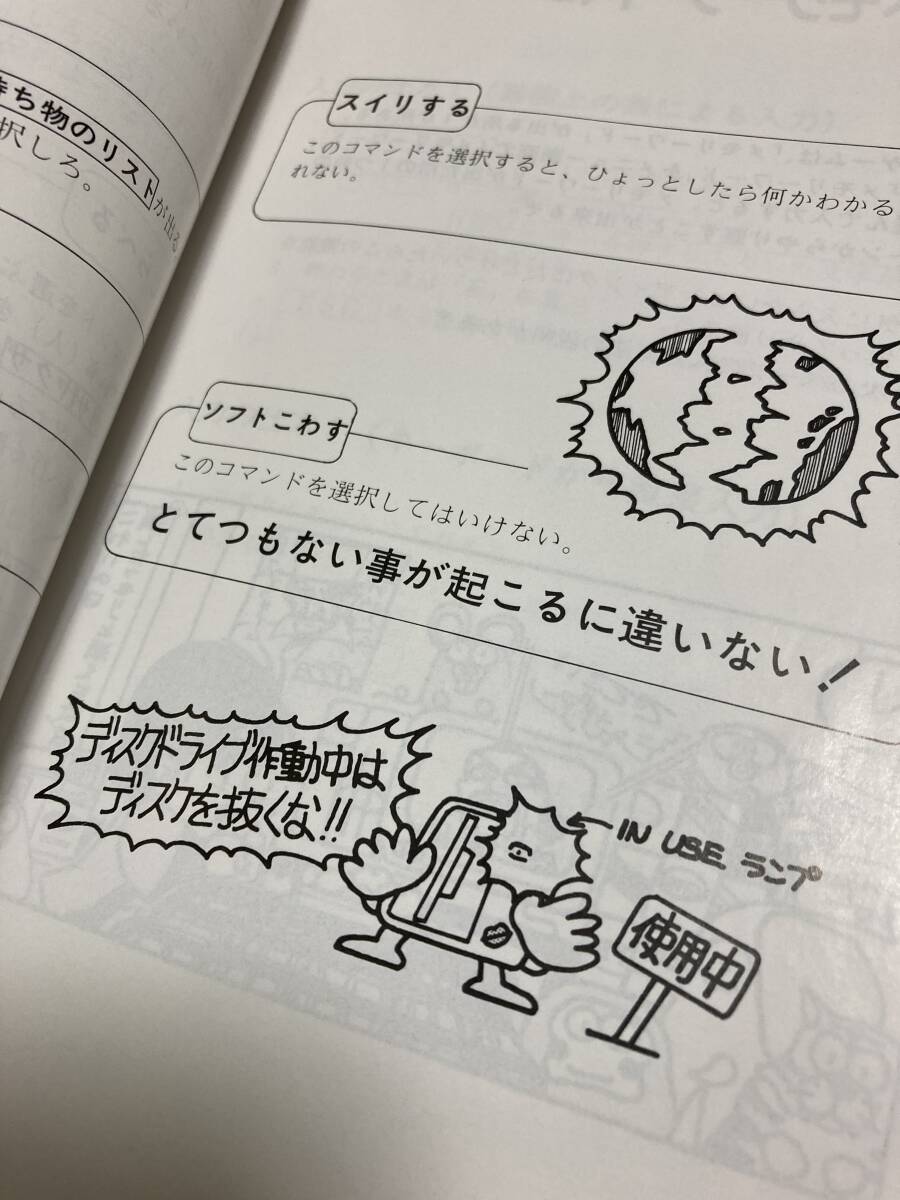 持ち物のリストが出る
択しろ。
スイリする
このコマンドを選択すると、ひょっとしたら何かわかる
れない。
ソフトこわす
このコマンドを選択してはいけない。
とてつもない事が起こるに違いない!
ディスクドライブ作動中は
ディスクを抜くな!!
IN USE ランプ
使用中